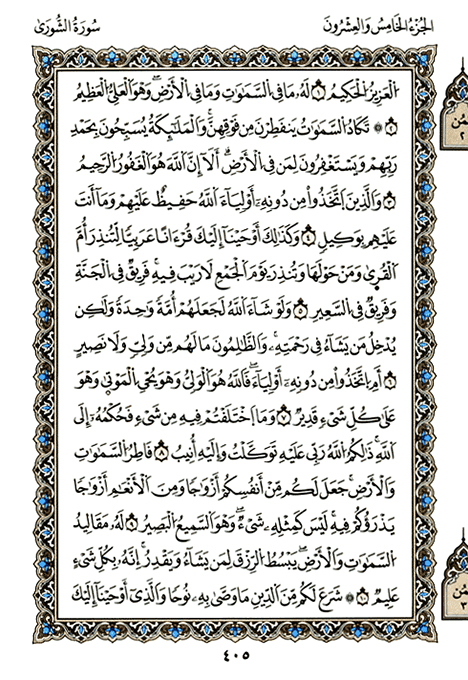 الجُزءُ الخَامِسُ وَالعِشْرُونَ
سُورَةُ الشُّورَىٰ
اَلْعَزِيزُ اُلْحَكِيمُ ١ لَهُۥ مَا فِى اِلسَّمَٰوَٰتِ وَمَا فِى اِلْأَرْضِ وَهْوَ اَلْعَلِىُّ اُلْعَظِيمُ
٢ تَكَادُ اُلسَّمَٰوَٰتُ يَنفَطِرْنَ مِن فَوْقِهِنَّ وَالْمَلَٰٓئِكَةُ يُسَبِّحُونَ بِحَمْدِ
رَبِّهِمْ وَيَسْتَغْفِرُونَ لِمَن فِى اِلْأَرْضِ أَلَآ إِنَّ اَللَّهَ هُوَ اَلْغَفُورُ اُلرَّحِيمُ
٣ وَالَّذِينَ اَتَّخَذُوا۟ مِن دُونِهِۦٓ أَوْلِيَآءَ اَللَّهُ حَفِيظٌ عَلَيْهِمْ وَمَآ أَنتَ
عَلَيْهِم بِوَكِيلٍ ٤ وَكَذَٰلِكَ أَوْحَيْنَآ إِلَيْكَ قُرْءَانًا عَرَبِيًّا لِّتُنذِرَ أُمَّ
اَلْقُرَىٰ وَمَنْ حَوْلَهَا وَتُنذِرَ يَوْمَ اَلْجَمْعِ لَا رَيْبَ فِيهِ فَرِيقٌ فِى اِلْجَنَّةِ
وَفَرِيقٌ فِى اِلسَّعِيرِ ٥ وَلَوْ شَآءَ اَللَّهُ لَجَعَلَهُمْ أُمَّةً وَٰحِدَةً وَلَٰكِن
يُدْخِلُ مَن يَشَآءُ فِى رَحْمَتِهِۦ وَالظَّٰلِمُونَ مَا لَهُم مِّن وَلِىٍّ وَلَا نَصِيرٍ
٦ أَمِ اِتَّخَذُوا۟ مِن دُونِهِۦٓ أَوْلِيَآءَ فَاللَّهُ هُوَ اَلْوَلِىُّ وَهْوَ يُحْىِ اِلْمَوْتَىٰ وَهْوَ
عَلَىٰ كُلِّ شَىْءٍ قَدِيرٌ ٧ وَمَا اَخْتَلَفْتُمْ فِيهِ مِن شَىْءٍ فَحُكْمُهُۥٓ إِلَى
اَللَّهِ ذَٰلِكُمُ اُللَّهُ رَبِّى عَلَيْهِ تَوَكَّلْتُ وَإِلَيْهِ أُنِيبُ ٨ فَاطِرُ اُلسَّمَٰوَٰتِ
وَالْأَرْضِ جَعَلَ لَكُم مِّنْ أَنفُسِكُمْ أَزْوَٰجًا وَمِنَ اَلْأَنْعَٰمِ أَزْوَٰجًا
يَذْرَؤُكُمْ فِيهِ لَيْسَ كَمِثْلِهِۦ شَىْءٌ وَهْوَ اَلسَّمِيعُ اُلْبَصِيرُ ٩ لَهُۥ مَقَالِيدُ
اُلسَّمَٰوَٰتِ وَالْأَرْضِ يَبْسُطُ اُلرِّزْقَ لِمَن يَشَآءُ وَيَقْدِرُ إِنَّهُۥ بِكُلِّ شَىْءٍ
عَلِيمٌ ١٠ شَرَعَ لَكُم مِّنَ اَلدِّينِ مَا وَصَّىٰ بِهِۦ نُوحًا وَالَّذِىٓ أَوْحَيْنَآ إِلَيْكَ
٤٠٥